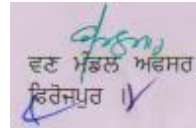 ਵਣ ਮੰਡਲ ਅਫਸਰ
ਫਿਰੋਜਪੁਰ ।